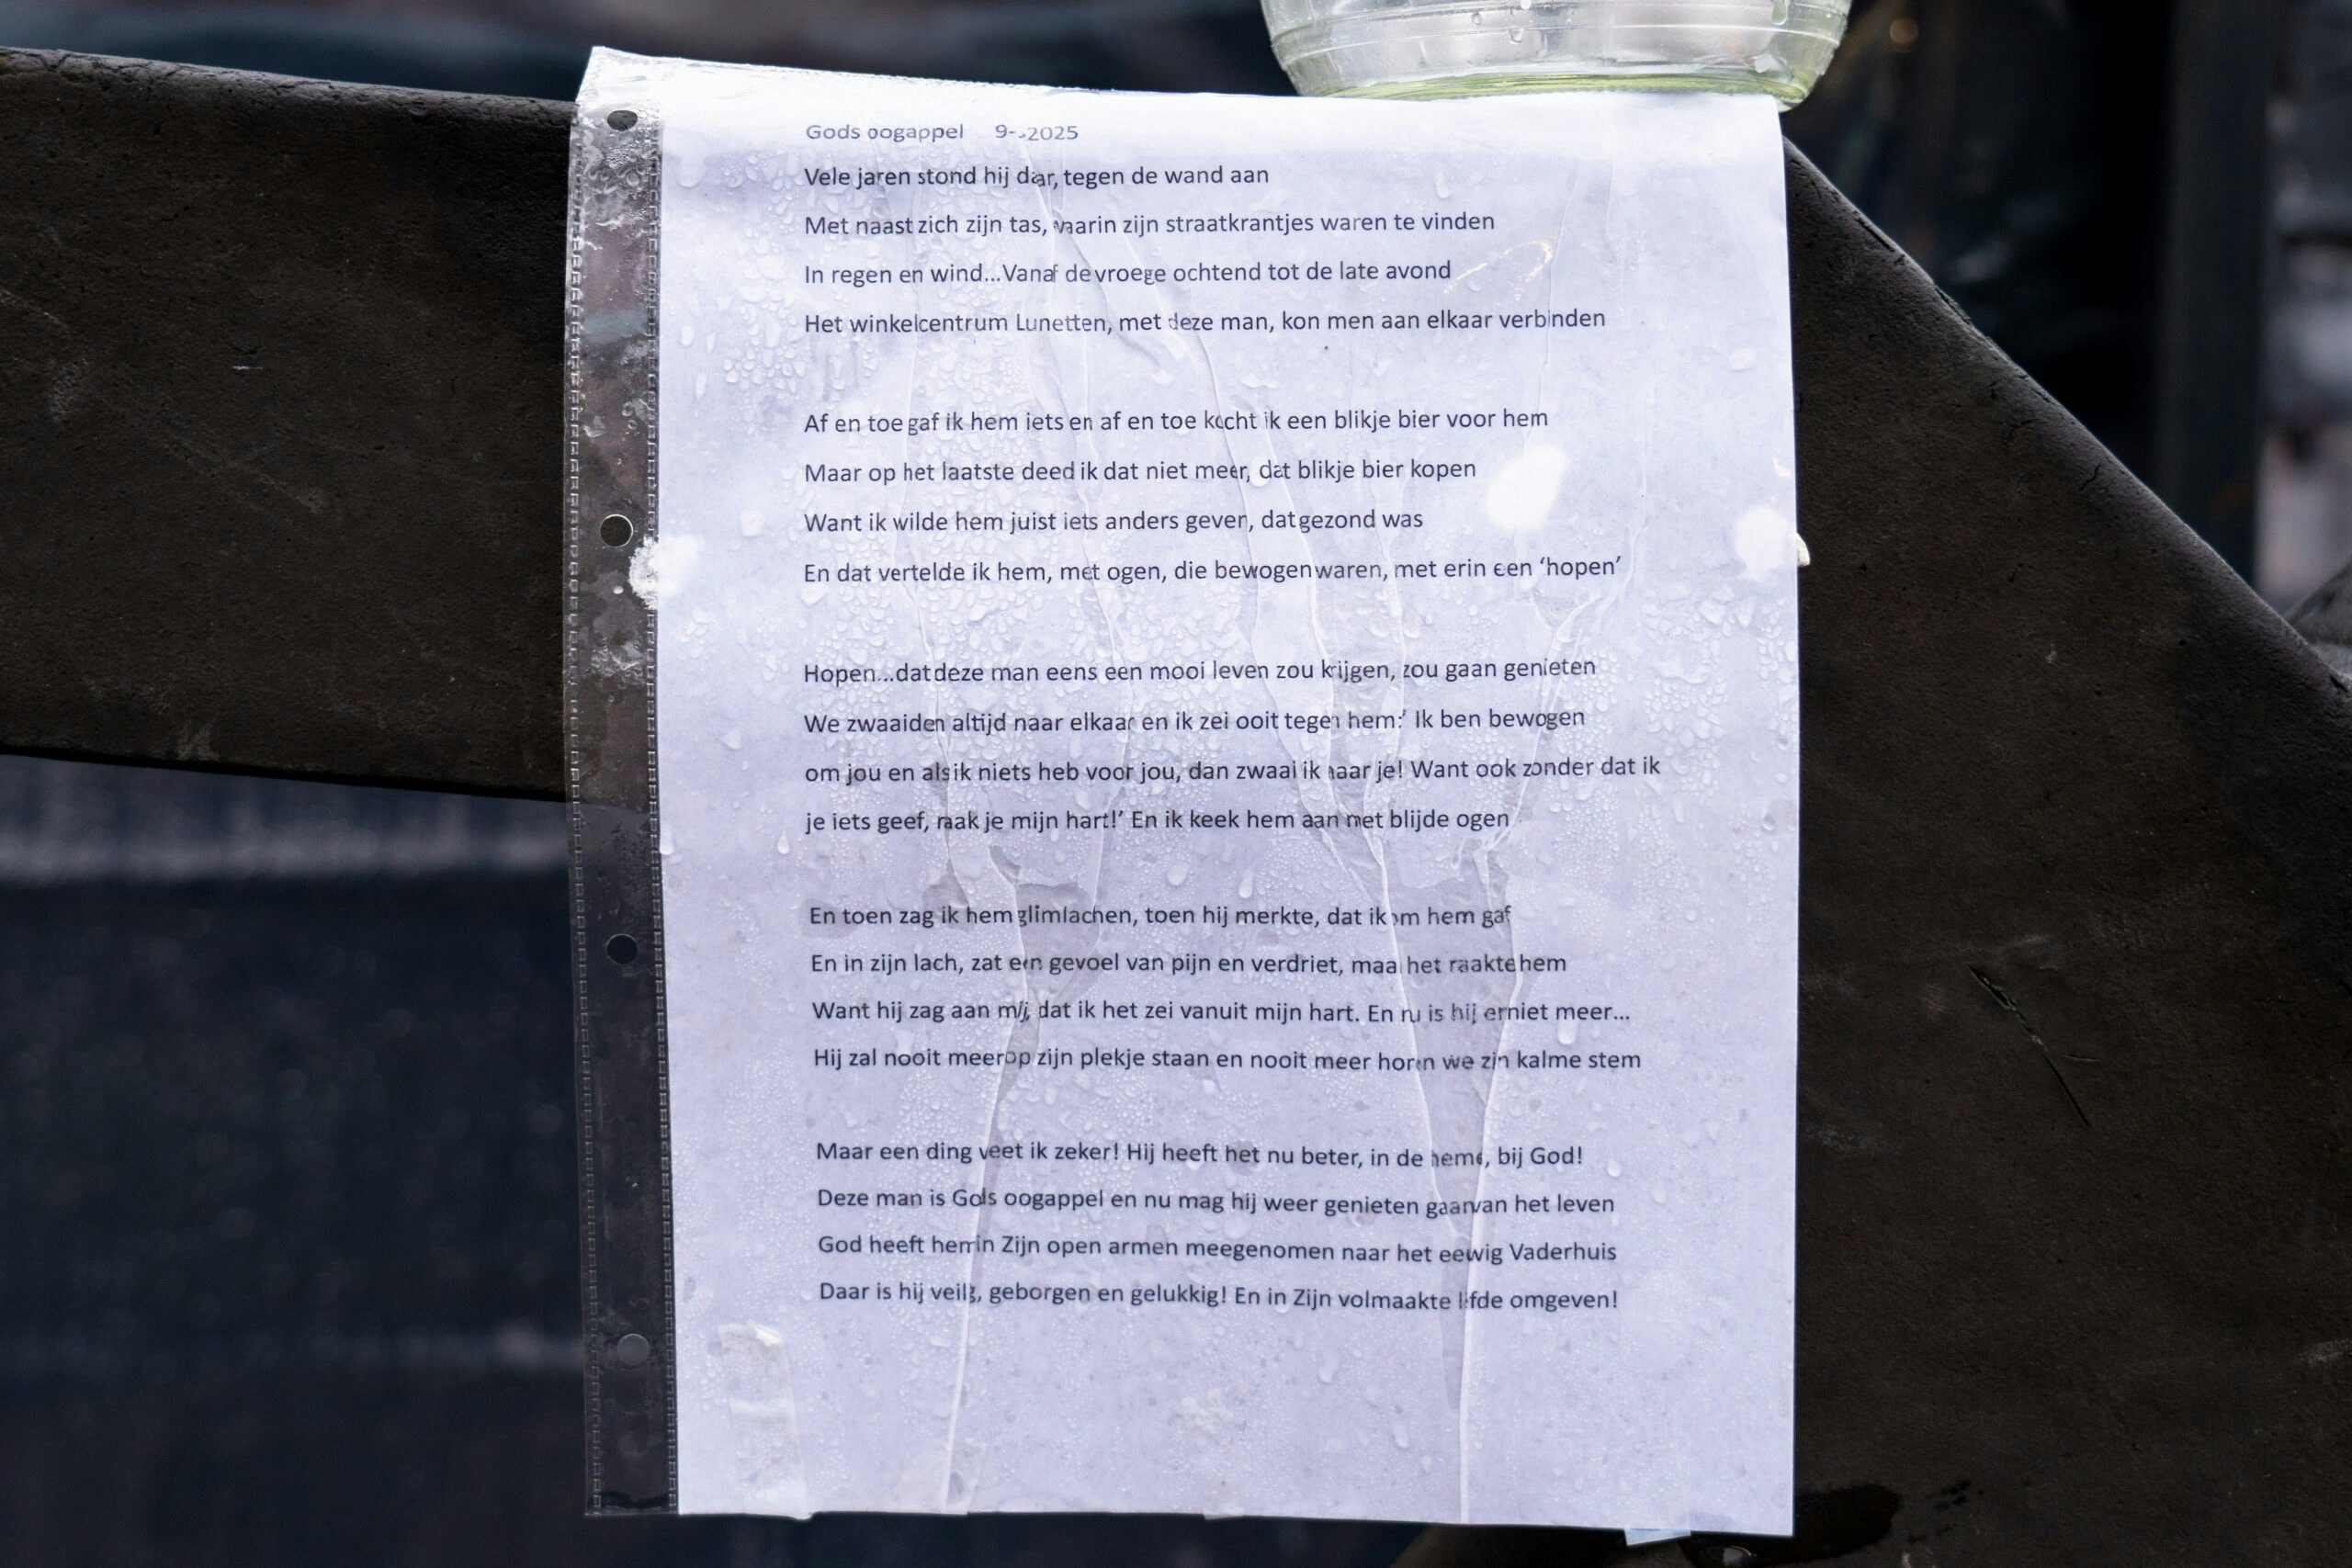 Gods oogappel 9- -2025
Vele jaren stond hij daar, tegen de wand aan
Met naast zich zijn tas, waarin zijn straatkrantjes waren te vinden
In regen en wind...Vanaf de vroege ochtend tot de late avond
Het winkelcentrum Lunetten, met deze man, kon men aan elkaar verbinden
Af en toe gaf ik hem iets en af en toe kocht ik een blikje bier voor hem
Maar op het laatste deed ik dat niet meer, dat blikje bier kopen
Want ik wilde hem juist iets anders geven, dat gezond was
En dat vertelde ik hem, met ogen, die bewogen waren, met erin een ‘hopen’
Hopen...dat deze man eens een mooi leven zou krijgen, zou gaan genieten
We zwaaiden altijd naar elkaar en ik zei ooit tegen hem:’ Ik ben bewogen
om jou en als ik niets heb voor jou, dan zwaai ik naar je! Want ook zonder dat ik
je iets geef, raak je mijn hart!’ En ik keek hem aan met blijde ogen
En toen zag ik hem glimlachen, toen hij merkte, dat ik om hem gaf
En in zijn lach, zat een gevoel van pijn en verdriet, maar het raakte hem
Want hij zag aan mij, dat ik het zei vanuit mijn hart. En nu is hij er niet meer...
Hij zal nooit meer op zijn plekje staan en nooit meer horen we zijn kalme stem
Maar een ding weet ik zeker! Hij heeft het nu beter, in de hemel, bij God!
Deze man is Gods oogappel en nu mag hij weer genieten gaan van het leven
God heeft hem in Zijn open armen meegenomen naar het eewig Vaderhuis
Daar is hij veilig, geborgen en gelukkig! En in Zijn volmaakte liefde omgeven!